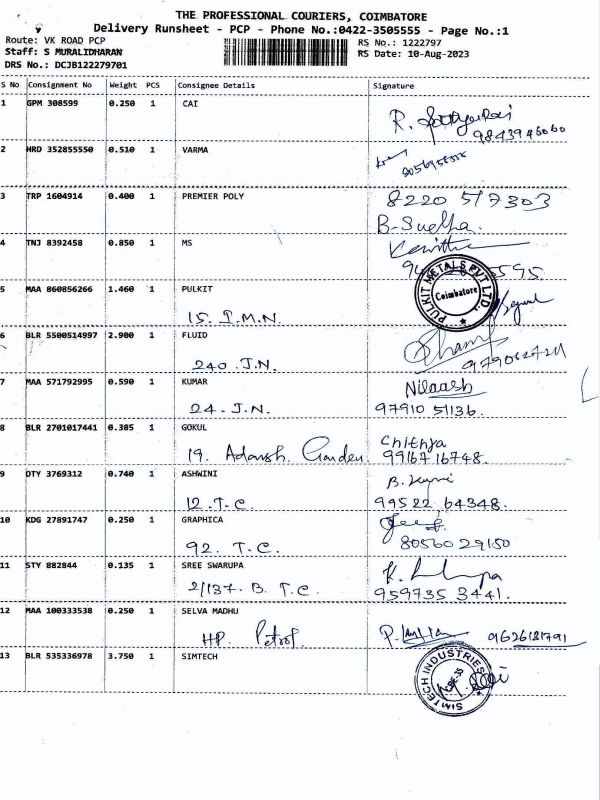 THE PROFESSIONAL COURIERS, COIMBATORE
Delivery Runsheet - PCP - Phone No.:0422-3505555 - Page No.:1
Route: VK ROAD PCP RS No.: 1222797
Staff: S MURALIDHARAN RS Date: 10-Aug-2023
DRS No.: DCJB122279701
S No Consignment No Weight PCS Consignee Details Signature
1 GPM 308599 0.250 1 CAI
R.
9843946060
2 HRD 352855550 0.510 1 VARMA
3 TRP 1604914 0.400 1 PREMIER POLY 8220 517303
B-Sudha.
4 TNJ 8392458 0.850 1 MS Kavitha
5595
5 MAA 860856266 1.460 1 PULKIT
PULKIT METALS PVT LTD.
Coimbatore
15. I.M.N
6 BLR 5500514997 2.900 1 FLUID
240. J.N.
7 MAA 571792995 0.590 1 KUMAR Nilaash
24. J.N. 97910 51136.
8 BLR 2701017441 0.385 1 GOKUL Chithya
19. Adarsh. Garden. 9916716748.
9 DTY 3769312 0.740 1 ASHWINI B.
12. T.C. 99522 64348.
10 KDG 27891747 0.250 1 GRAPHICA
92. T.C. 80560 29150
11 STY 882844 0.135 1 SREE SWARUPA K.
2/137. B. T.C. 959735 3441.
12 MAA 100333538 0.250 1 SELVA MADHU
HP. Petrol P. 9626121791
13 BLR 535336978 3.750 1 SIMTECH
SIMTECH INDUSTRIES
CBE-35